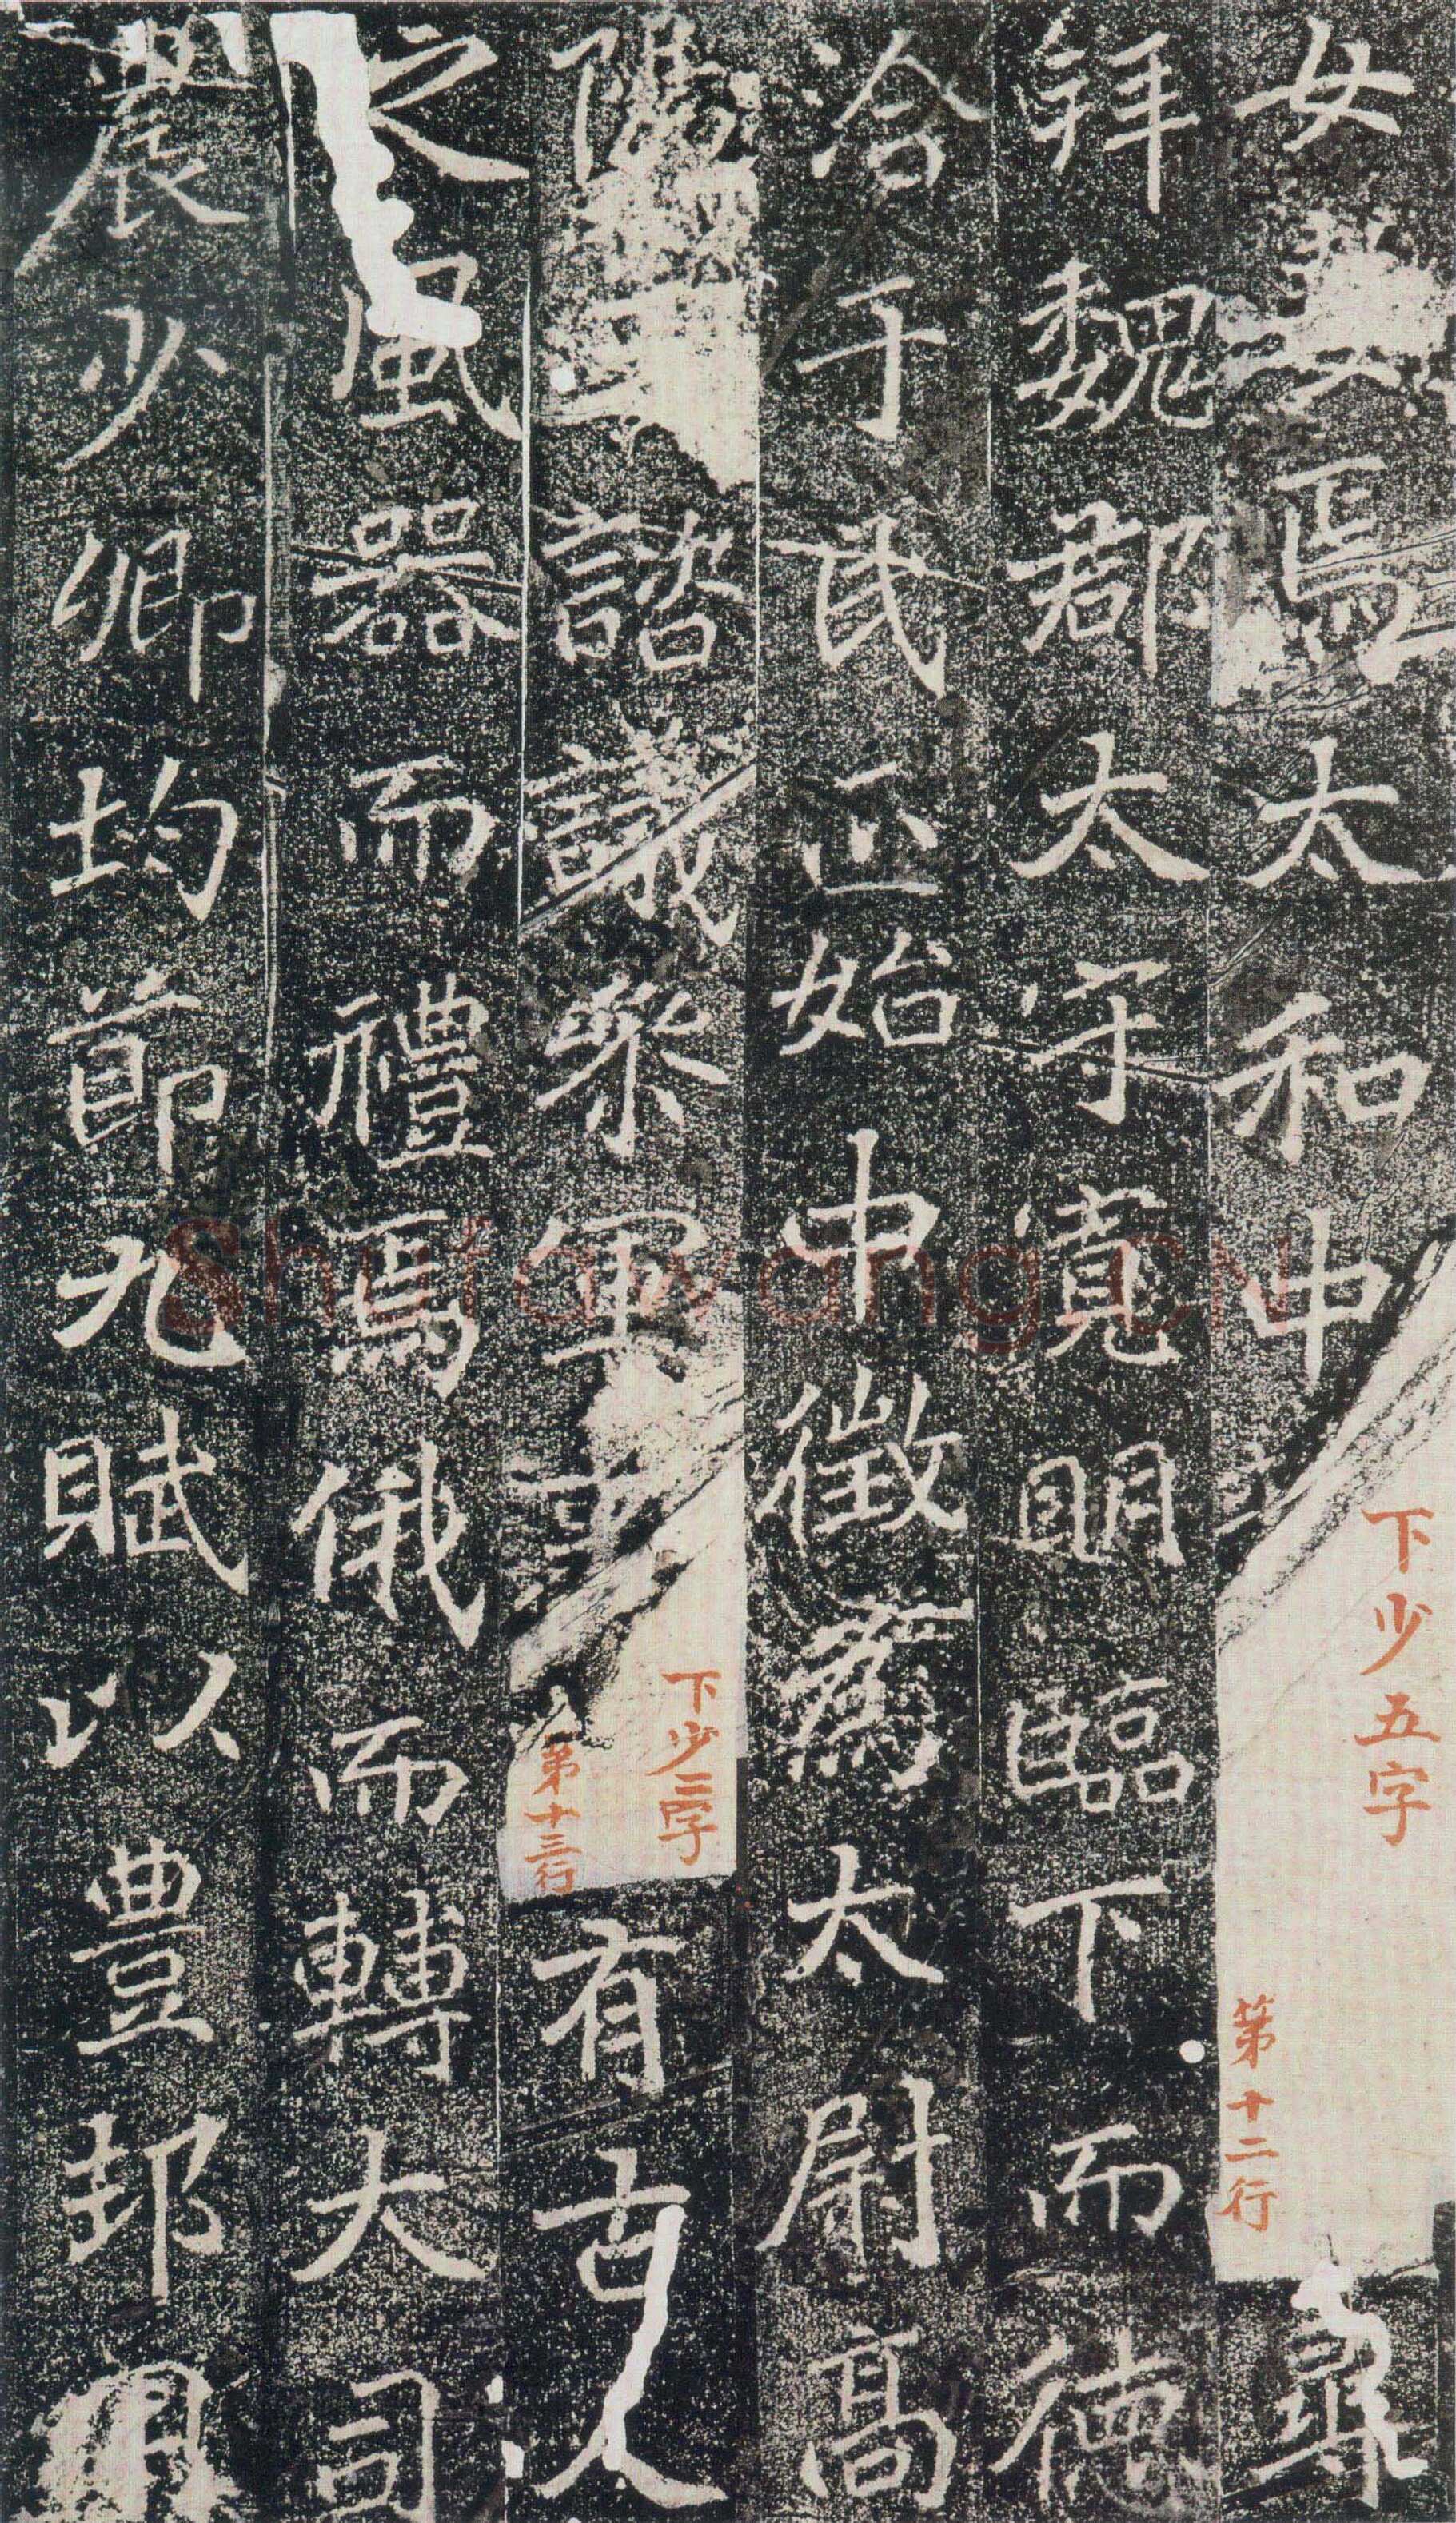 女
焉太和中
下少五字
第十二行
尋
拜魏郡太守寬明臨下而德
洽于民正始中徵爲太尉高
陽王諮議參軍事
下少二字
第十三行
有古人
之風器而禮焉俄而轉大司
農少卿均節九賦以豊邦用
Shufawang.CN